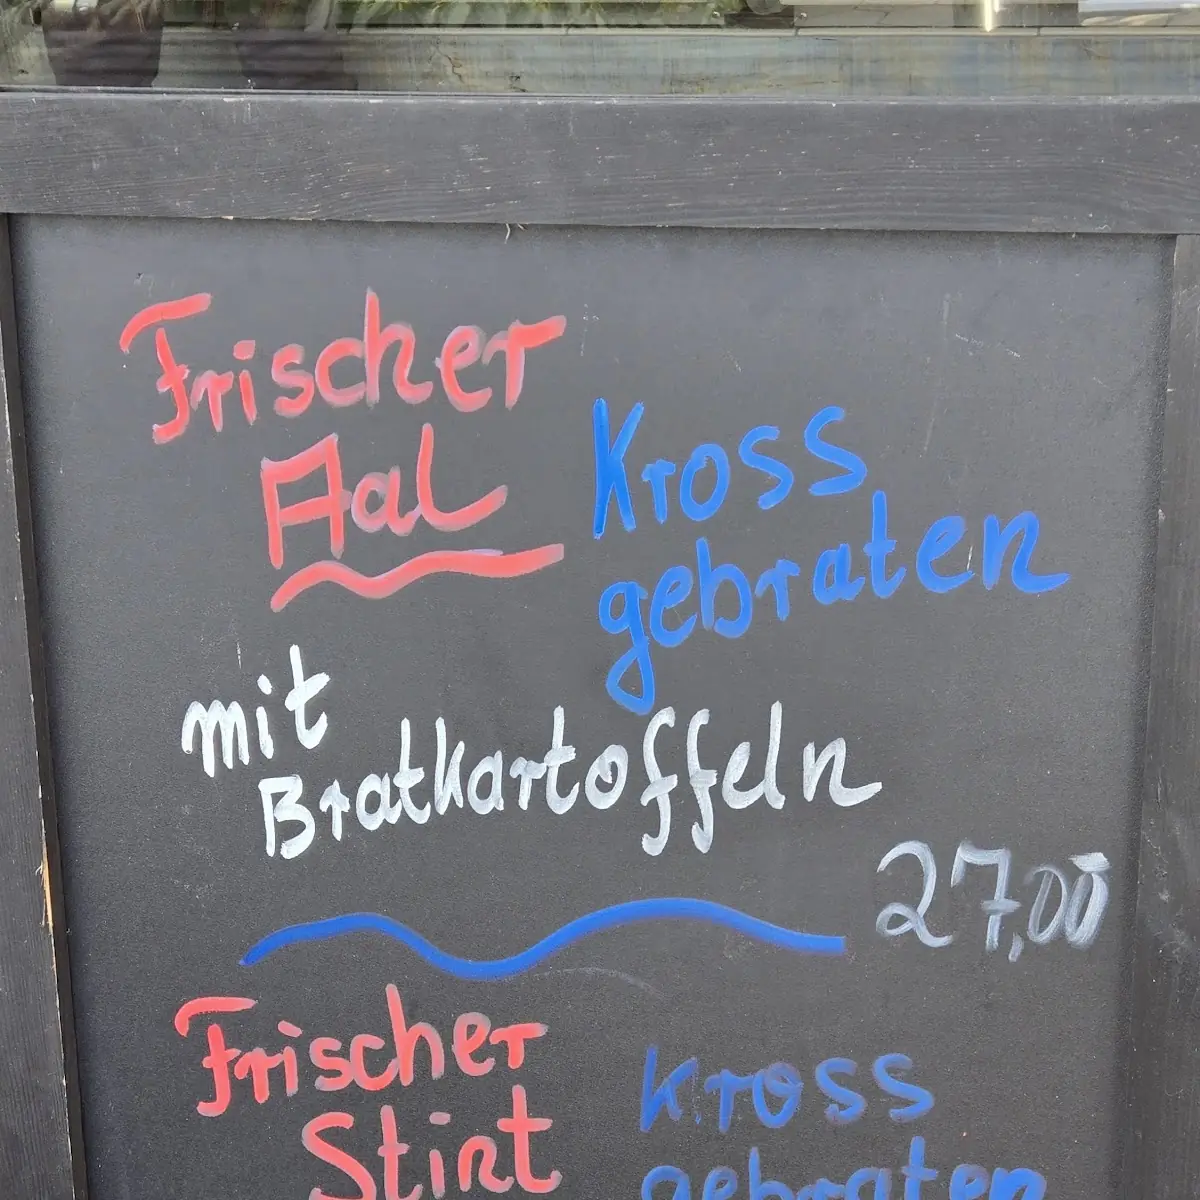 Frischer
Aal
Kross
gebraten
mit
Bratkartoffeln
27,00
Frischer
Stint
Kross
gebraten